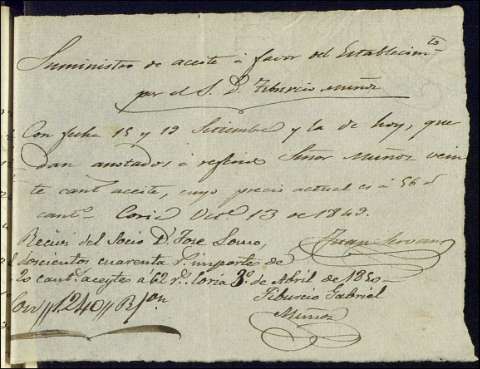 Suministro de aceite á favor del Establecim.to
por el S. D. Tiburcio Muñoz
Con fecha 15 y 19 Setiembre y la de hoy, que
dan anotados á referido Señor Muñoz vein
te cant.s aceite, cuyo precio actual es á 56 r.s
cant.o Coria Oct.e 13 de 1849.
Recivi del Socio D. Jose
doscientos cuarenta r.s importe de
20 cant.s aceyte á 62 r.s Coria 3 de Abril de 1850
Tiburcio Gabriel
Muñoz
Son //1.240// R.s von